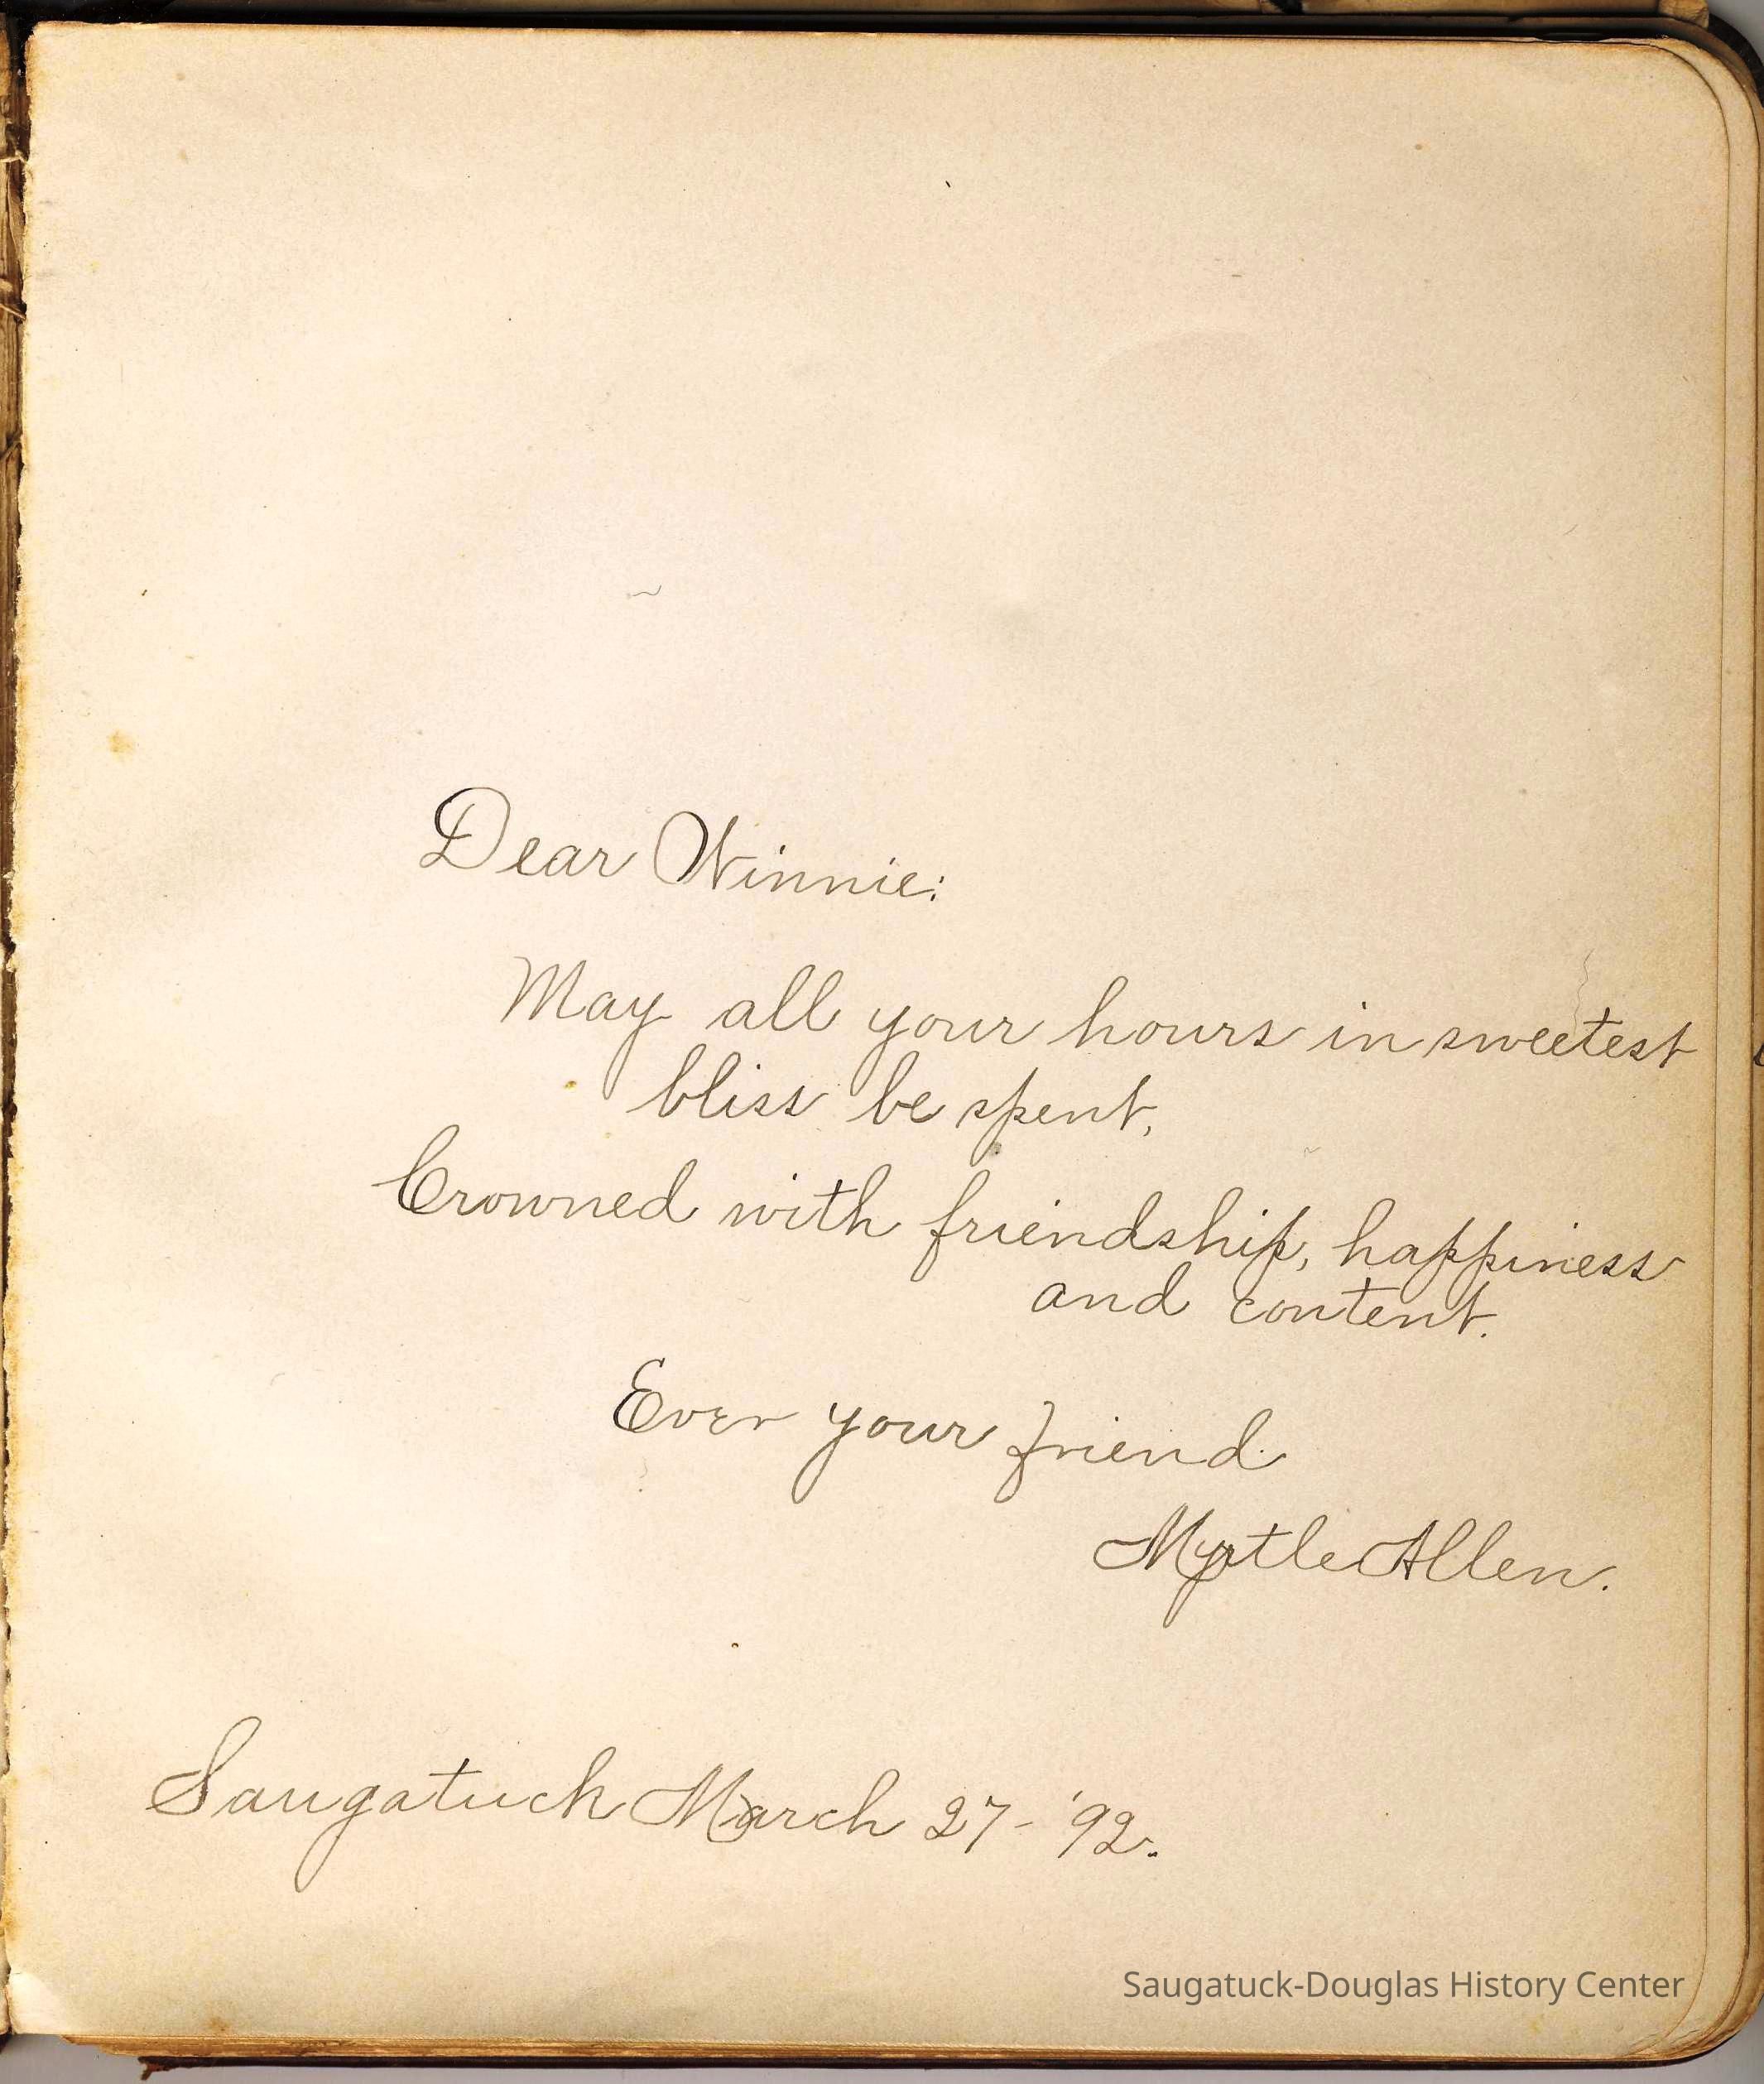 Dear Winnie:
May all your hours in sweetest
bliss be spent,
Crowned with friendship, happiness
and content.
Ever your friend
Myrtle Allen.
Saugatuck March 27-'92.
Saugatuck-Douglas History Center